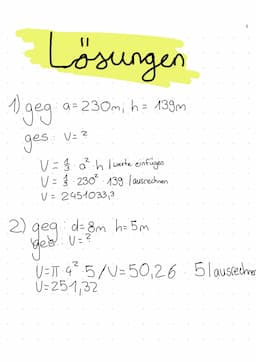 Lösungen
1) geg: a=230m, h= 139m
ges: V=?
V= 1/3 · a² · h | werte einfügen
V= 1/3 · 230² · 139 | ausrechnen
V= 2451033,3
2) geg: d=8m h=5m
geb: V=?
V=π·4²·5/V=50,26 · 5 | ausrechnen
V=251,32